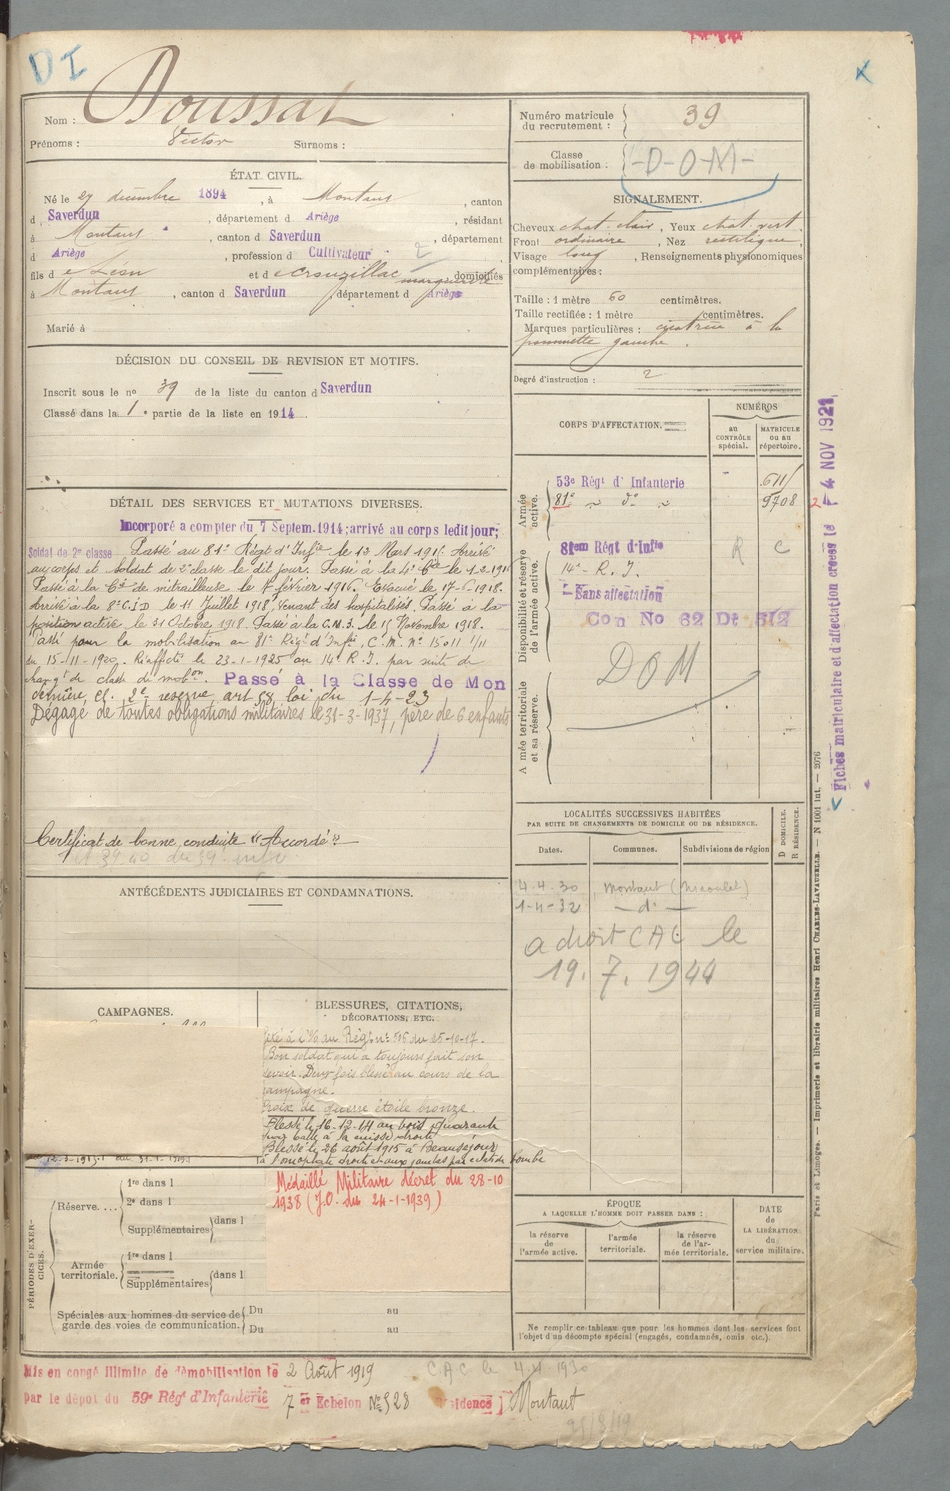 D I
Nom : Doussat
Prénoms : Victor Surnoms :
ÉTAT CIVIL.
Né le 27 décembre 1894, à Montaut, canton
d Saverdun, département d Ariège, résidant
à Montaut, canton d Saverdun, département
d Ariège, profession d Cultivateur
fils de Léon et de Crouzillac marguerite domiciliés
à Montaut, canton d Saverdun, département d Ariège
Marié à
DÉCISION DU CONSEIL DE REVISION ET MOTIFS.
Inscrit sous le no 39 de la liste du canton d Saverdun
Classé dans la 1e partie de la liste en 1914
DÉTAIL DES SERVICES ET MUTATIONS DIVERSES.
Incorporé a compter du 7 Septem. 1914; arrivé au corps ledit jour;
Soldat de 2e classe Passé au 81e Régt d'Infie le 13 Mars 1915. Arrivé
au corps et soldat de 2e classe le dit jour. Passé à la 4e Cie le 1-3-191
Passé à la Cie de mitrailleuse le février 1916. Evacué le 17-6-1918.
Arrivé à la 8e C.I.D le 11 Juillet 1918, venant des hospitalisés. Passé à la
position active le 31 Octobre 1918. Passé à la C.M.3. le 15 Novembre 1918.
Passé pour la mobilisation au 81e Régt d'Infie, C. M. No 15011 1/11
du 15-11-1920. Réaffecté le 23-1-1925 au 14e R.I. par suite de
changt de classe de mobon. Passé à la Classe de Mob
dernière Cl. 2e reserve, art 58 loi du 1-4-23
Dégagé de toutes obligations militaires le 31-3-1937, père de 6 enfants
Certificat de bonne conduite "Accordé"
ANTÉCÉDENTS JUDICIAIRES ET CONDAMNATIONS.
CAMPAGNES.
BLESSURES, CITATIONS,
DÉCORATIONS, ETC.
Cité à l'O/ au Régt no 515 du 25-10-17.
Bon soldat qui a toujours fait son
devoir. Deux fois blessé au cours de la
campagne.
Croix de guerre étoile bronze.
Blessé le 16-12-14 au bois Quarante
par balle à la cuisse droite
Blessé le 26 août 1915 à Beauséjour
à l'omoplate droite et aux jambes par éclats de bombe
Médaillé Militaire décret du 28-10
1938 (J.O. du 24-1-1939)
PÉRIODES D'EXERCICES.
Réserve....
1re dans l
2e dans l
Supplémentaires dans l
Armée territoriale.
1re dans l
Supplémentaires dans l
Spéciales aux hommes du service de garde des voies de communication.
Du au
Du au
Mis en congé illimité de démobilisation le 2 Août 1919
par le dépot du 59e Régt d'Infanterie 7 er Echelon No 528 Résidence Montaut
CAC le 4.11.1930
Numéro matricule du recrutement : 39
Classe de mobilisation : -D-O-M-
SIGNALEMENT.
Cheveux chat. clair, Yeux chat. vert.
Front ordinaire, Nez rectiligne,
Visage long, Renseignements physionomiques
complémentaires :
Taille : 1 mètre 60 centimètres.
Taille rectifiée : 1 mètre centimètres.
Marques particulières : cicatrice à la
pommette gauche.
Degré d'instruction : 2
CORPS D'AFFECTATION.
NUMÉROS
AU CONTRÔLE spécial.
MATRICULE ou au répertoire.
Armée active.
53e Régt d'Infanterie 611
81e ~ do ~ 9708
Disponibilité et réserve de l'armée active.
81em Régt d'Infie R C
14e R. I.
Sans affectation
Con No 62 Dt 512
DOM
Armée territoriale et sa réserve.
LOCALITÉS SUCCESSIVES HABITÉES
PAR SUITE DE CHANGEMENTS DE DOMICILE OU DE RÉSIDENCE.
Dates. Communes. Subdivisions de région
D DOMICILE. R RÉSIDENCE.
4-4-30 Montaut
1-4-32 — d° —
a droit CAC le
19.7.1944
ÉPOQUE
A LAQUELLE L'HOMME DOIT PASSER DANS :
la réserve de l'armée active.
l'armée territoriale.
la réserve de l'armée territoriale.
DATE de LA LIBÉRATION du service militaire.
Ne remplir ce tableau que pour les hommes dont les services font
l'objet d'un décompte spécial (engagés, condamnés, omis etc.).
Fiches matriculaire et d'affectation créées le 4 NOV 1921
Paris et Limoges. — Imprimerie et librairie militaires Henri CHARLES-LAVAUZELLE. — N 1001 int. — 2076